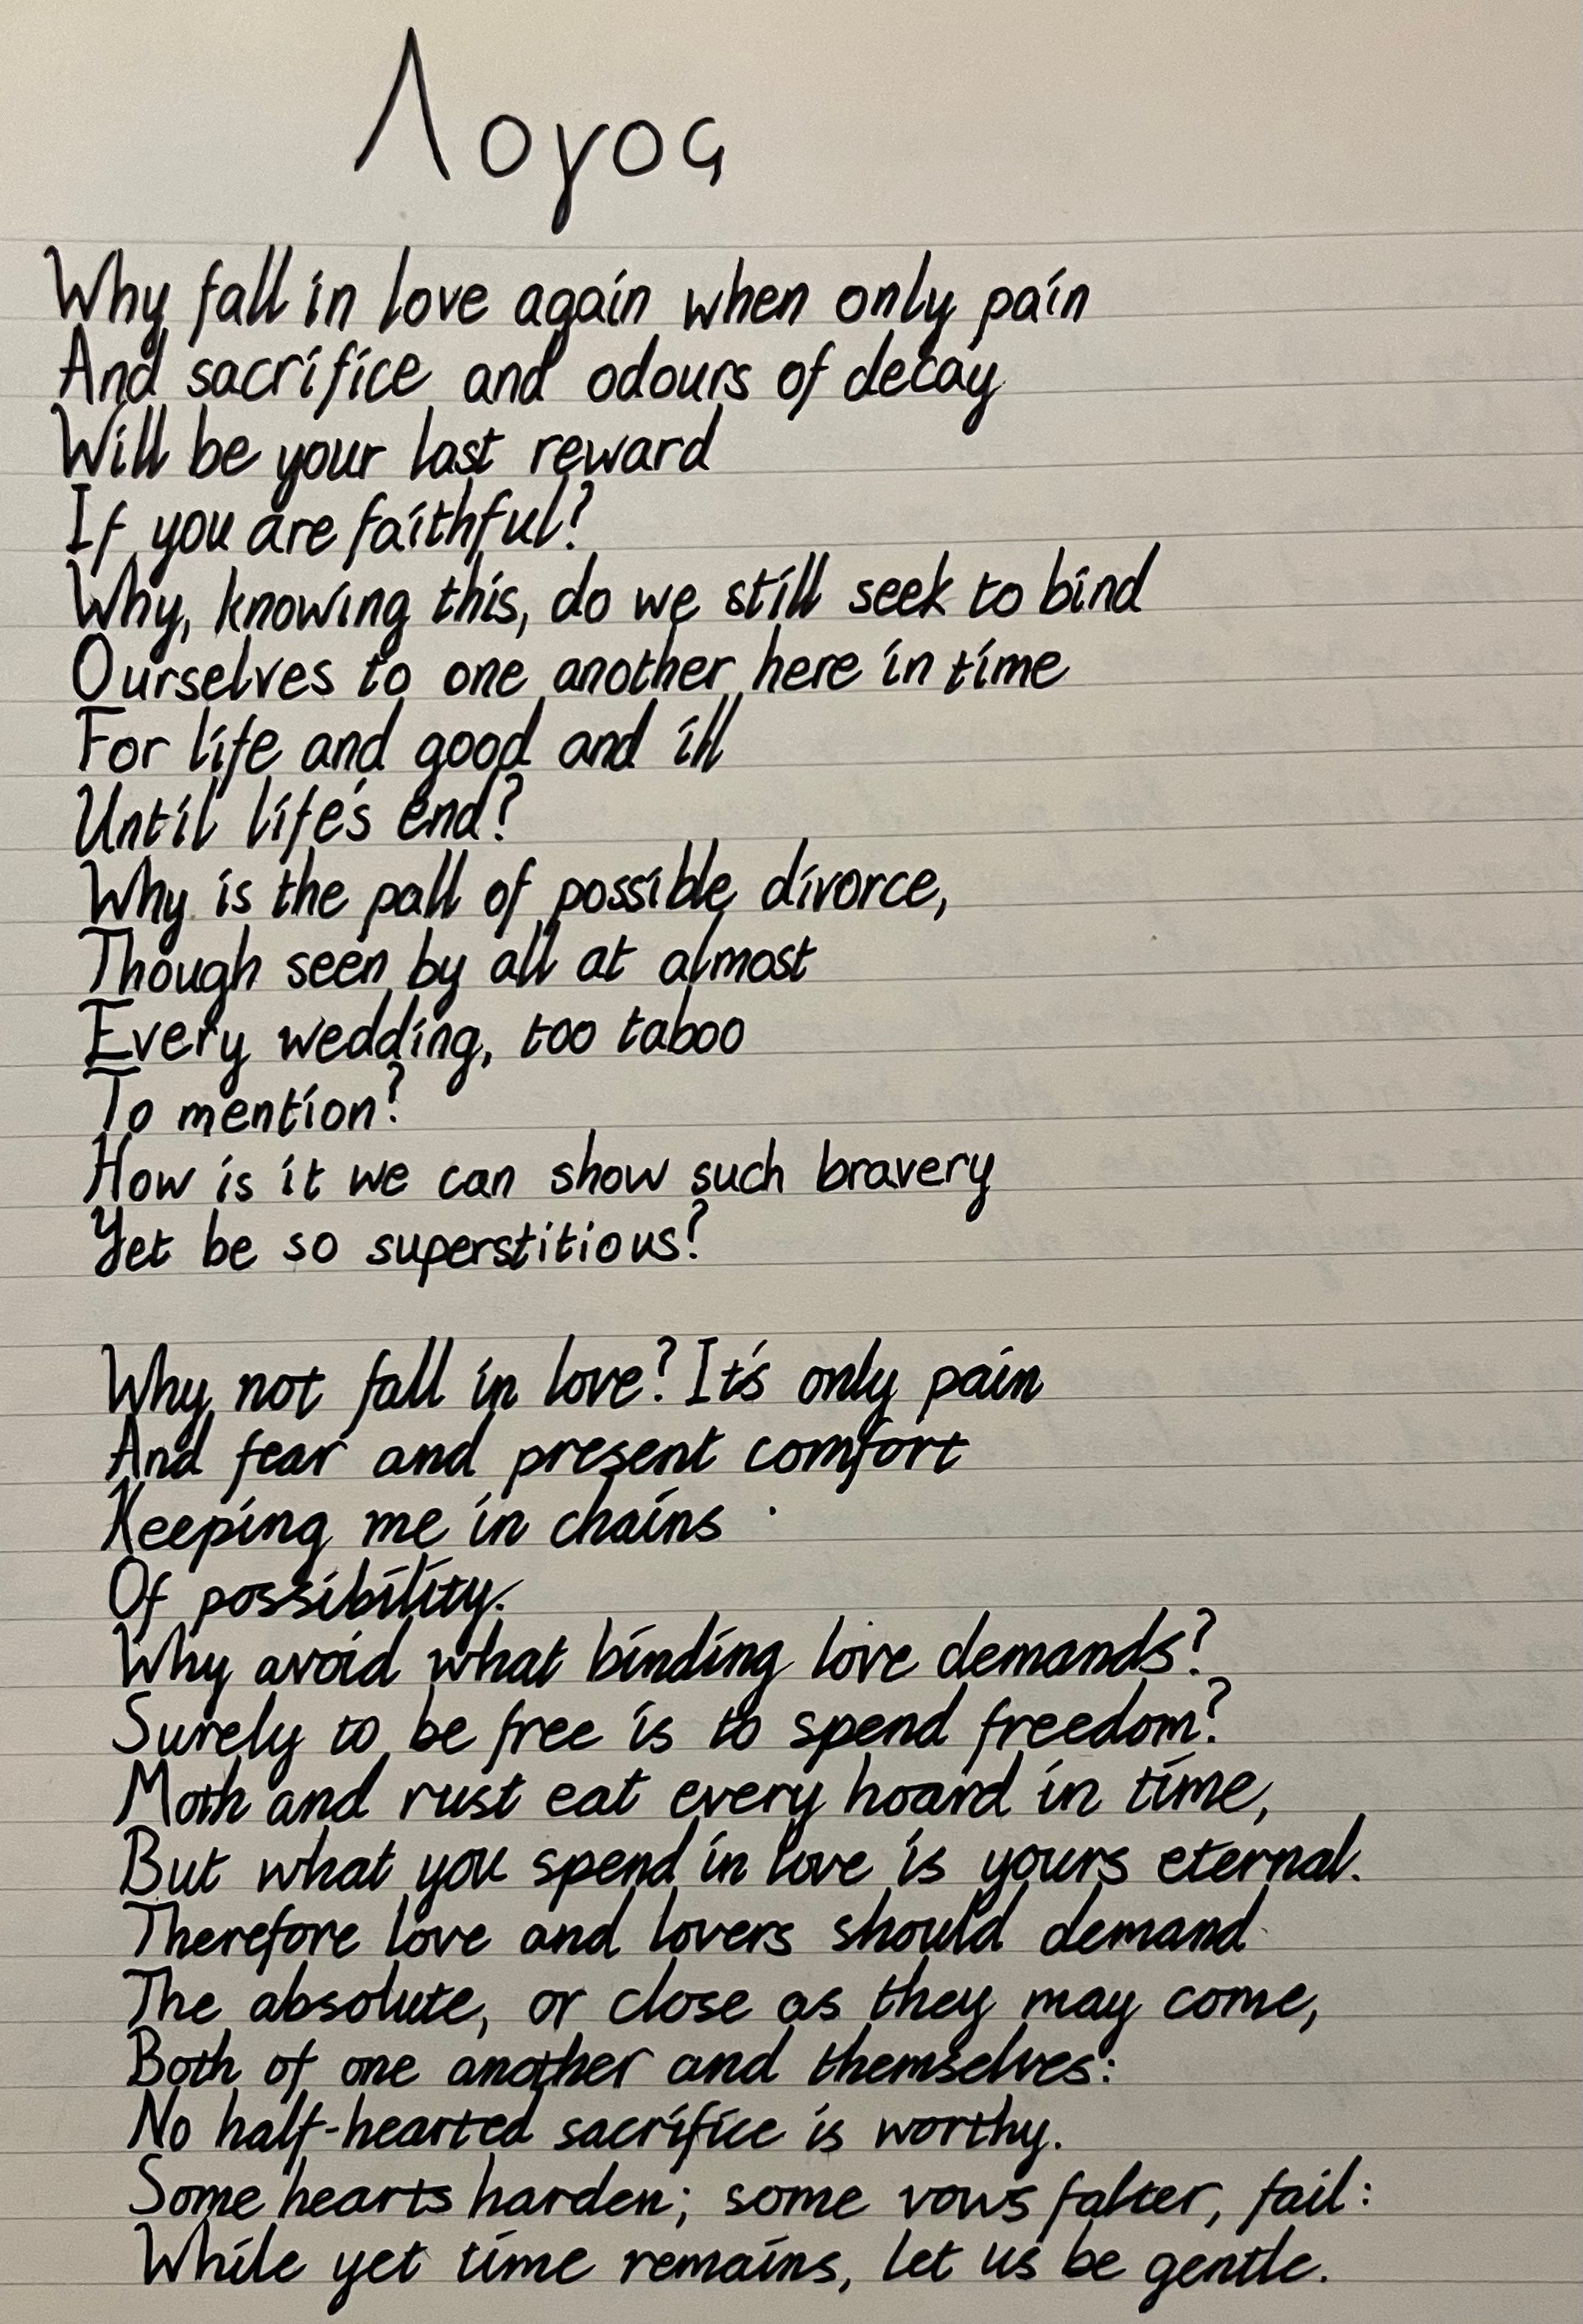 Λογος
Why fall in love again when only pain
And sacrifice and odours of decay
Will be your last reward
If you are faithful?
Why, knowing this, do we still seek to bind
Ourselves to one another here in time
For life and good and ill
Until life's end?
Why is the pall of possible divorce,
Though seen by all at almost
Every wedding, too taboo
To mention?
How is it we can show such bravery
Yet be so superstitious?
Why not fall in love? It's only pain
And fear and present comfort
Keeping me in chains
Of possibility.
Why avoid what binding love demands?
Surely to be free is to spend freedom?
Moth and rust eat every hoard in time,
But what you spend in love is yours eternal.
Therefore love and lovers should demand
The absolute, or close as they may come,
Both of one another and themselves:
No half-hearted sacrifice is worthy.
Some hearts harden; some vows falter, fail:
While yet time remains, let us be gentle.